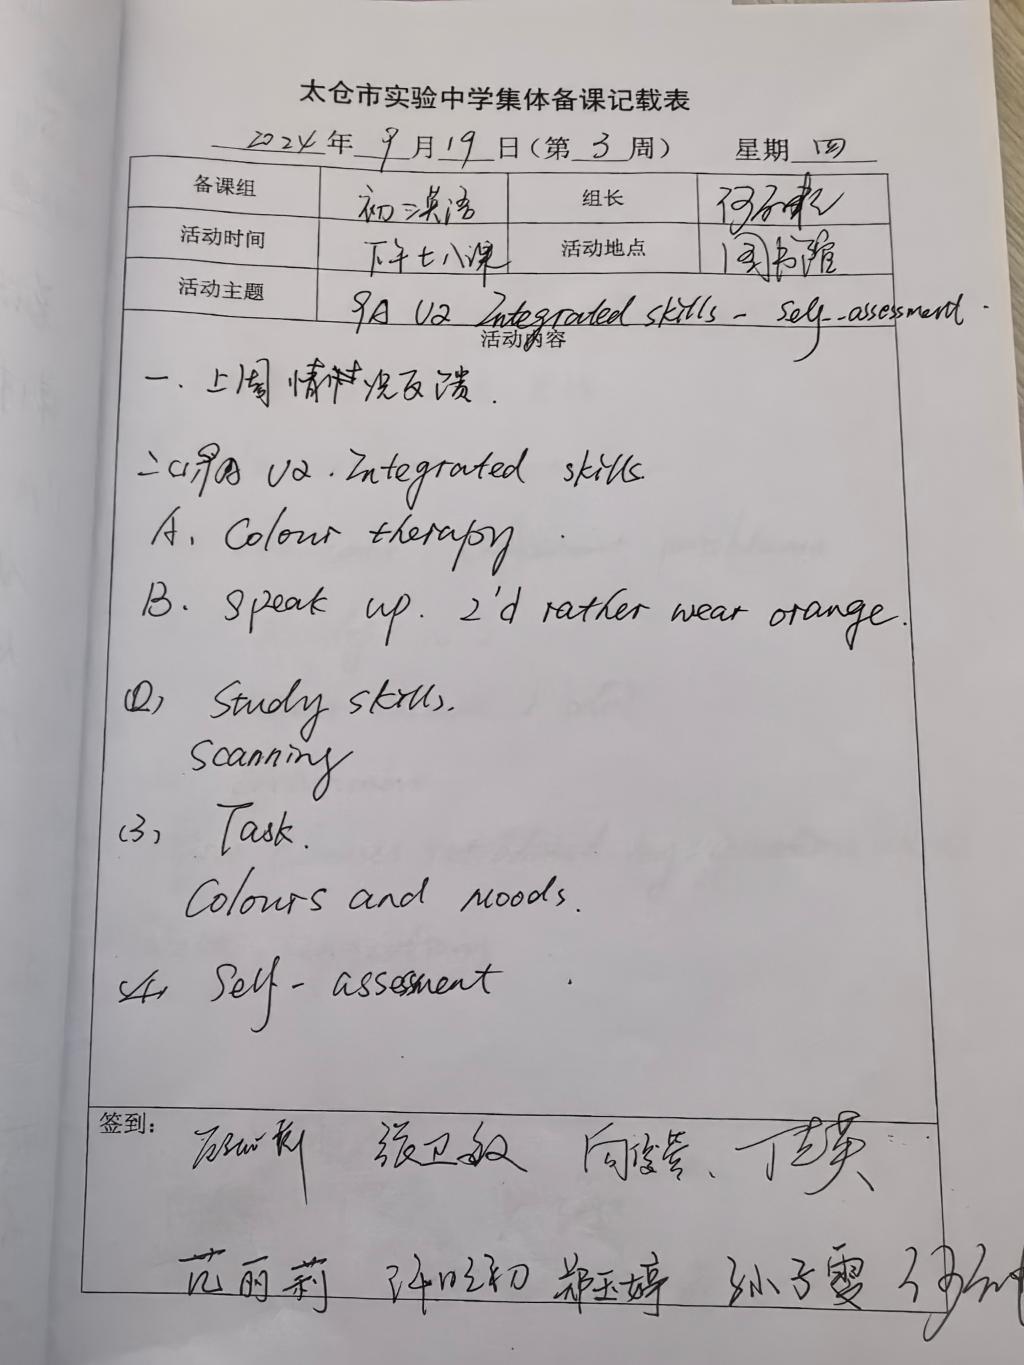 太仓市实验中学集体备课记载表
2024年 9月19日(第 3 周) 星期 四
备课组 初三英语 组长
活动时间 下午七八课 活动地点 图书馆
活动主题 9A U2 Integrated skills - Self-assessment.
活动内容
一. 上周情况反馈.
二(1)9A U2. Integrated skills.
A. Colour therapy.
B. Speak up. I'd rather wear orange.
(2) Study skills.
Scanning
(3) Task.
Colours and moods.
(4) Self-assessment.
签到: 张卫敏 向俊营、丁志英
范丽莉 郑玉婷 孙子雯